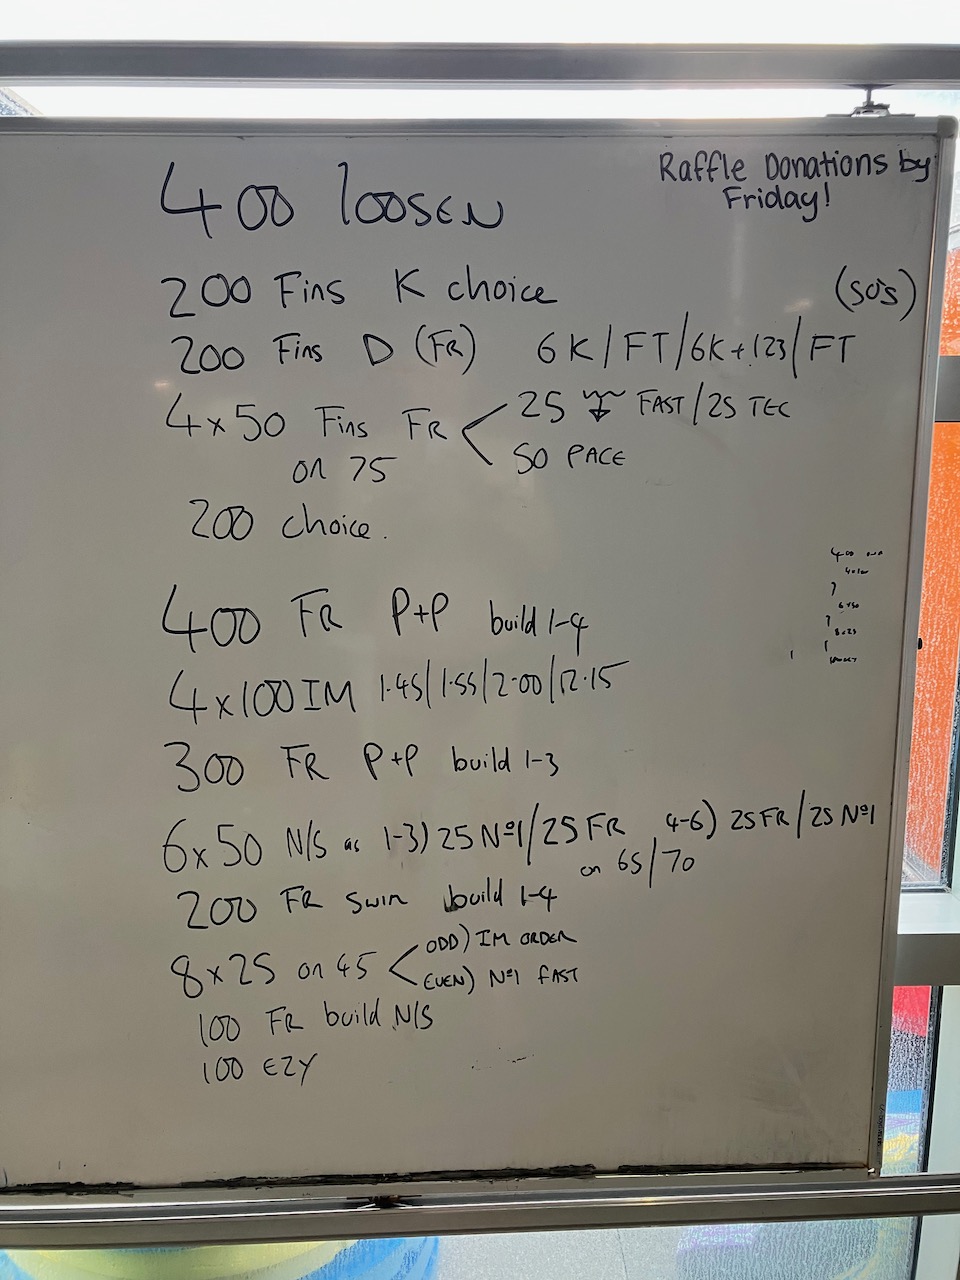 Raffle Donations by
Friday!
400 loosen
200 Fins K choice (50's)
200 Fins D (FR) 6K/FT/6K+123/FT
4x50 Fins FR 25 FAST/25 TEC
on 75 50 PACE
200 choice.
400 FR P+P build 1-4
4x100 IM 1.45/1.55/2.00/12.15
300 FR P+P build 1-3
6x50 N/S as 1-3) 25 Nº1/25 FR 4-6) 25 FR/25 Nº1
on 65/70
200 FR swim build 1-4
8x25 on 45 ODD) IM ORDER
EVEN) Nº1 FAST
100 FR build N/S
100 EZY
400
6x50
8x25